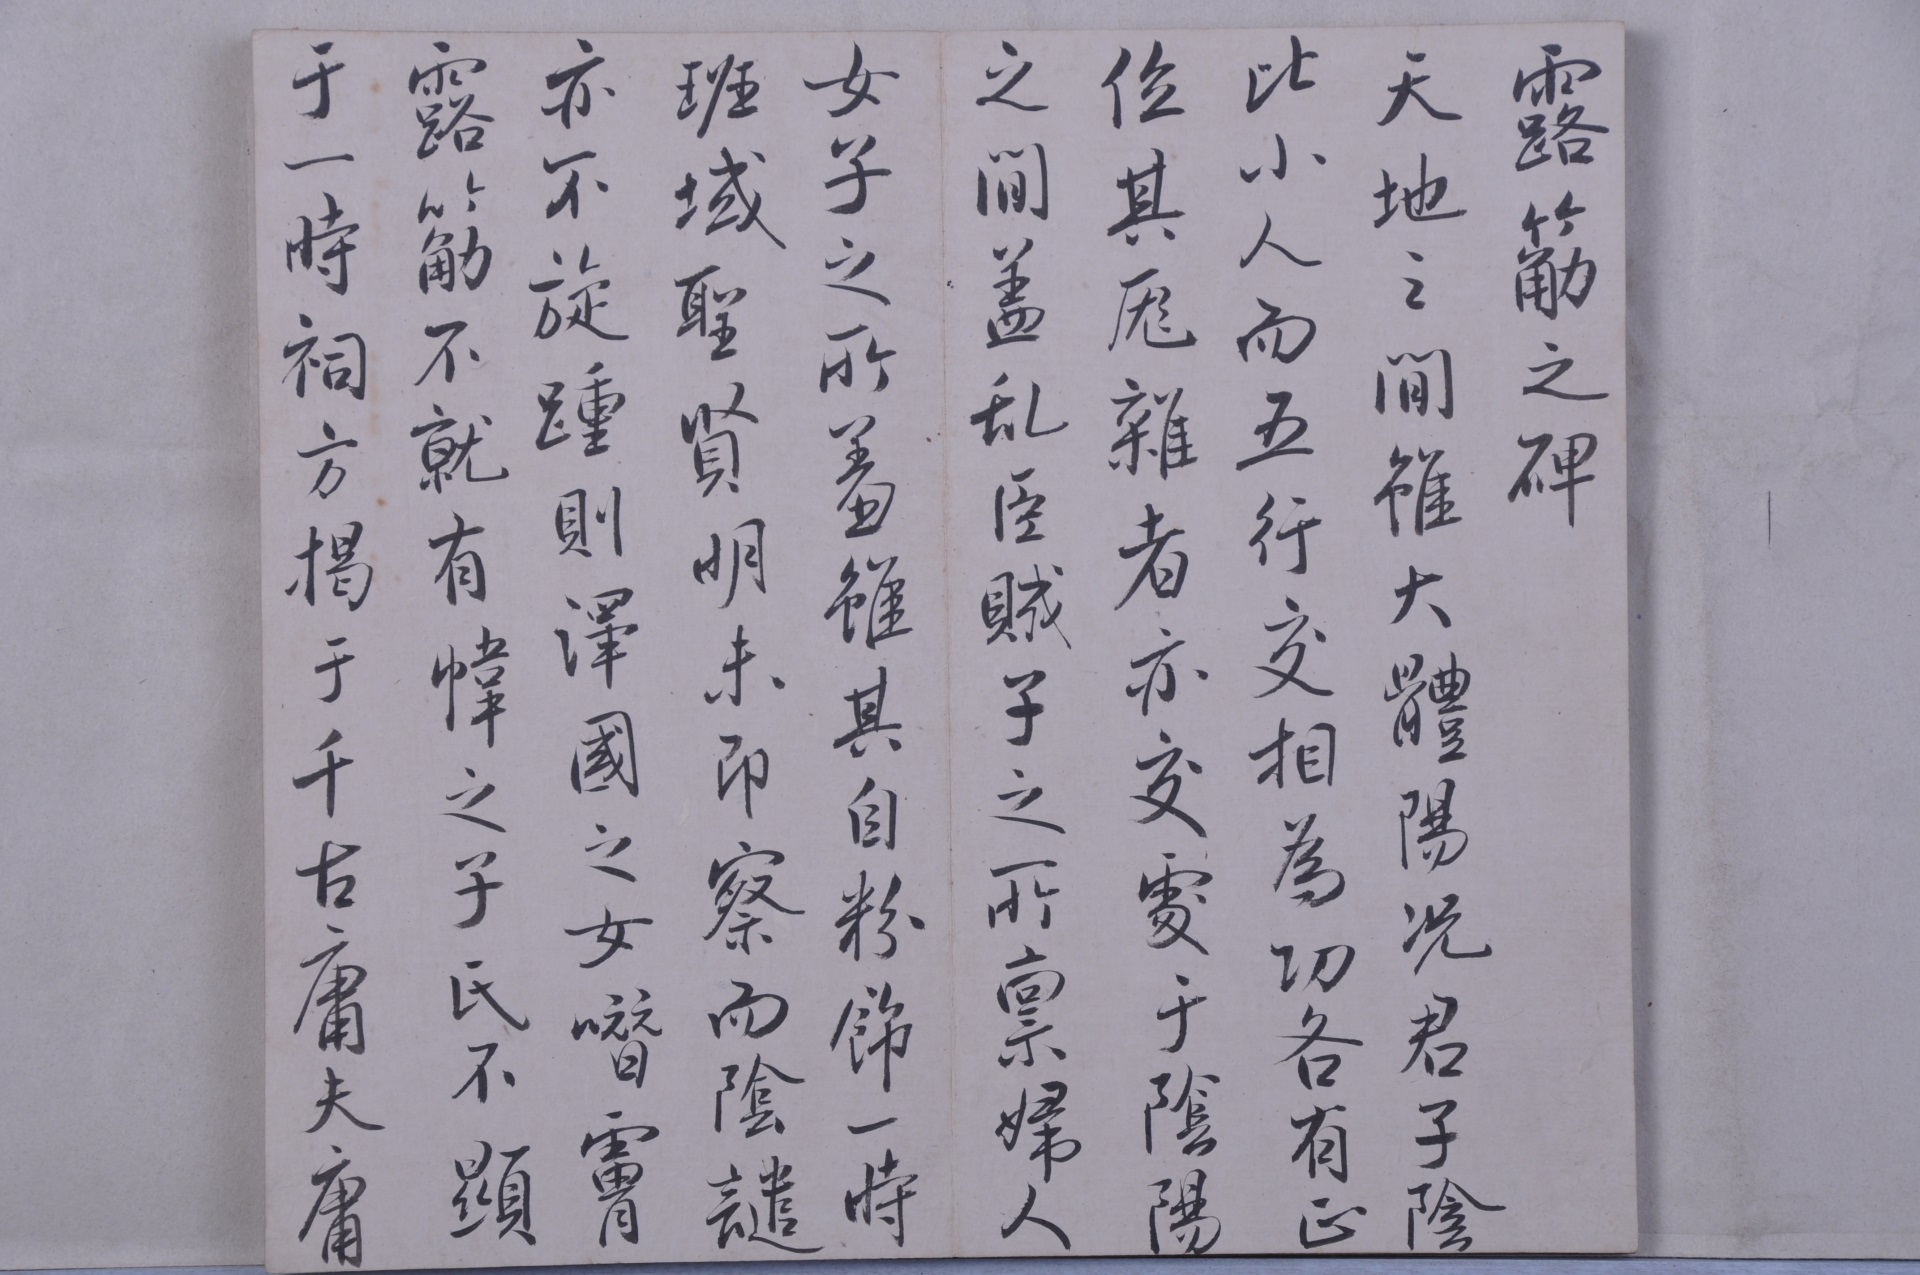 露筋之碑
天地之間雖大體陽況君子陰
比小人而五行交相為功各有正
位其厖雜者亦交處于陰陽
之間蓋乱臣賊子之所稟婦人
女子之所羞雖其自粉飾一時
班域聖賢明未即察而陰譴
亦不旋踵則澤國之女噆膚
露筋不就有幃之子氏不顯
于一時祠方揭于千古庸夫庸